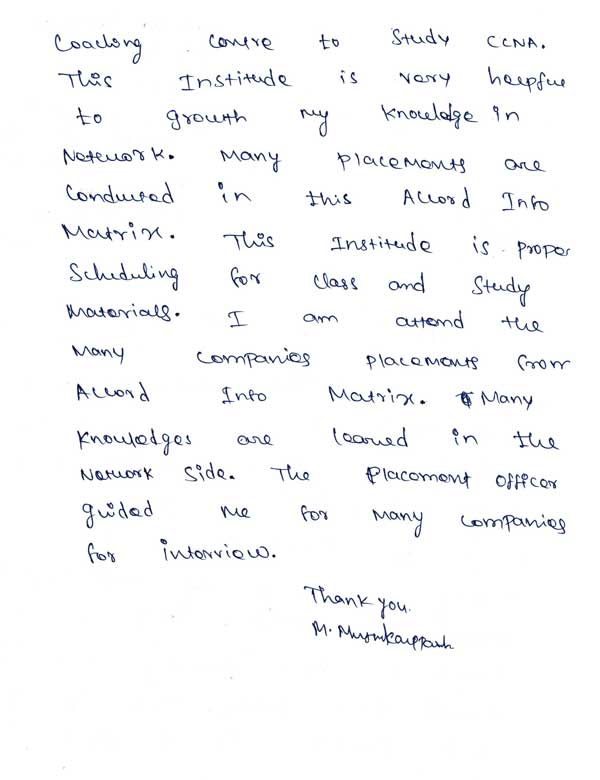 Coaching centre to Study CCNA.
This Institude is very helpful
to growth my knowledge in
Network. Many placements are
Conducted in this Accord Info
Matrix. This Institude is proper
Scheduling for class and Study
Materials. I am attend the
Many Companies placements from
Accord Info Matrix. Many
knowledges are learned in the
Network Side. The Placement officer
guided me for many companies
for interview.
Thank you.
M.